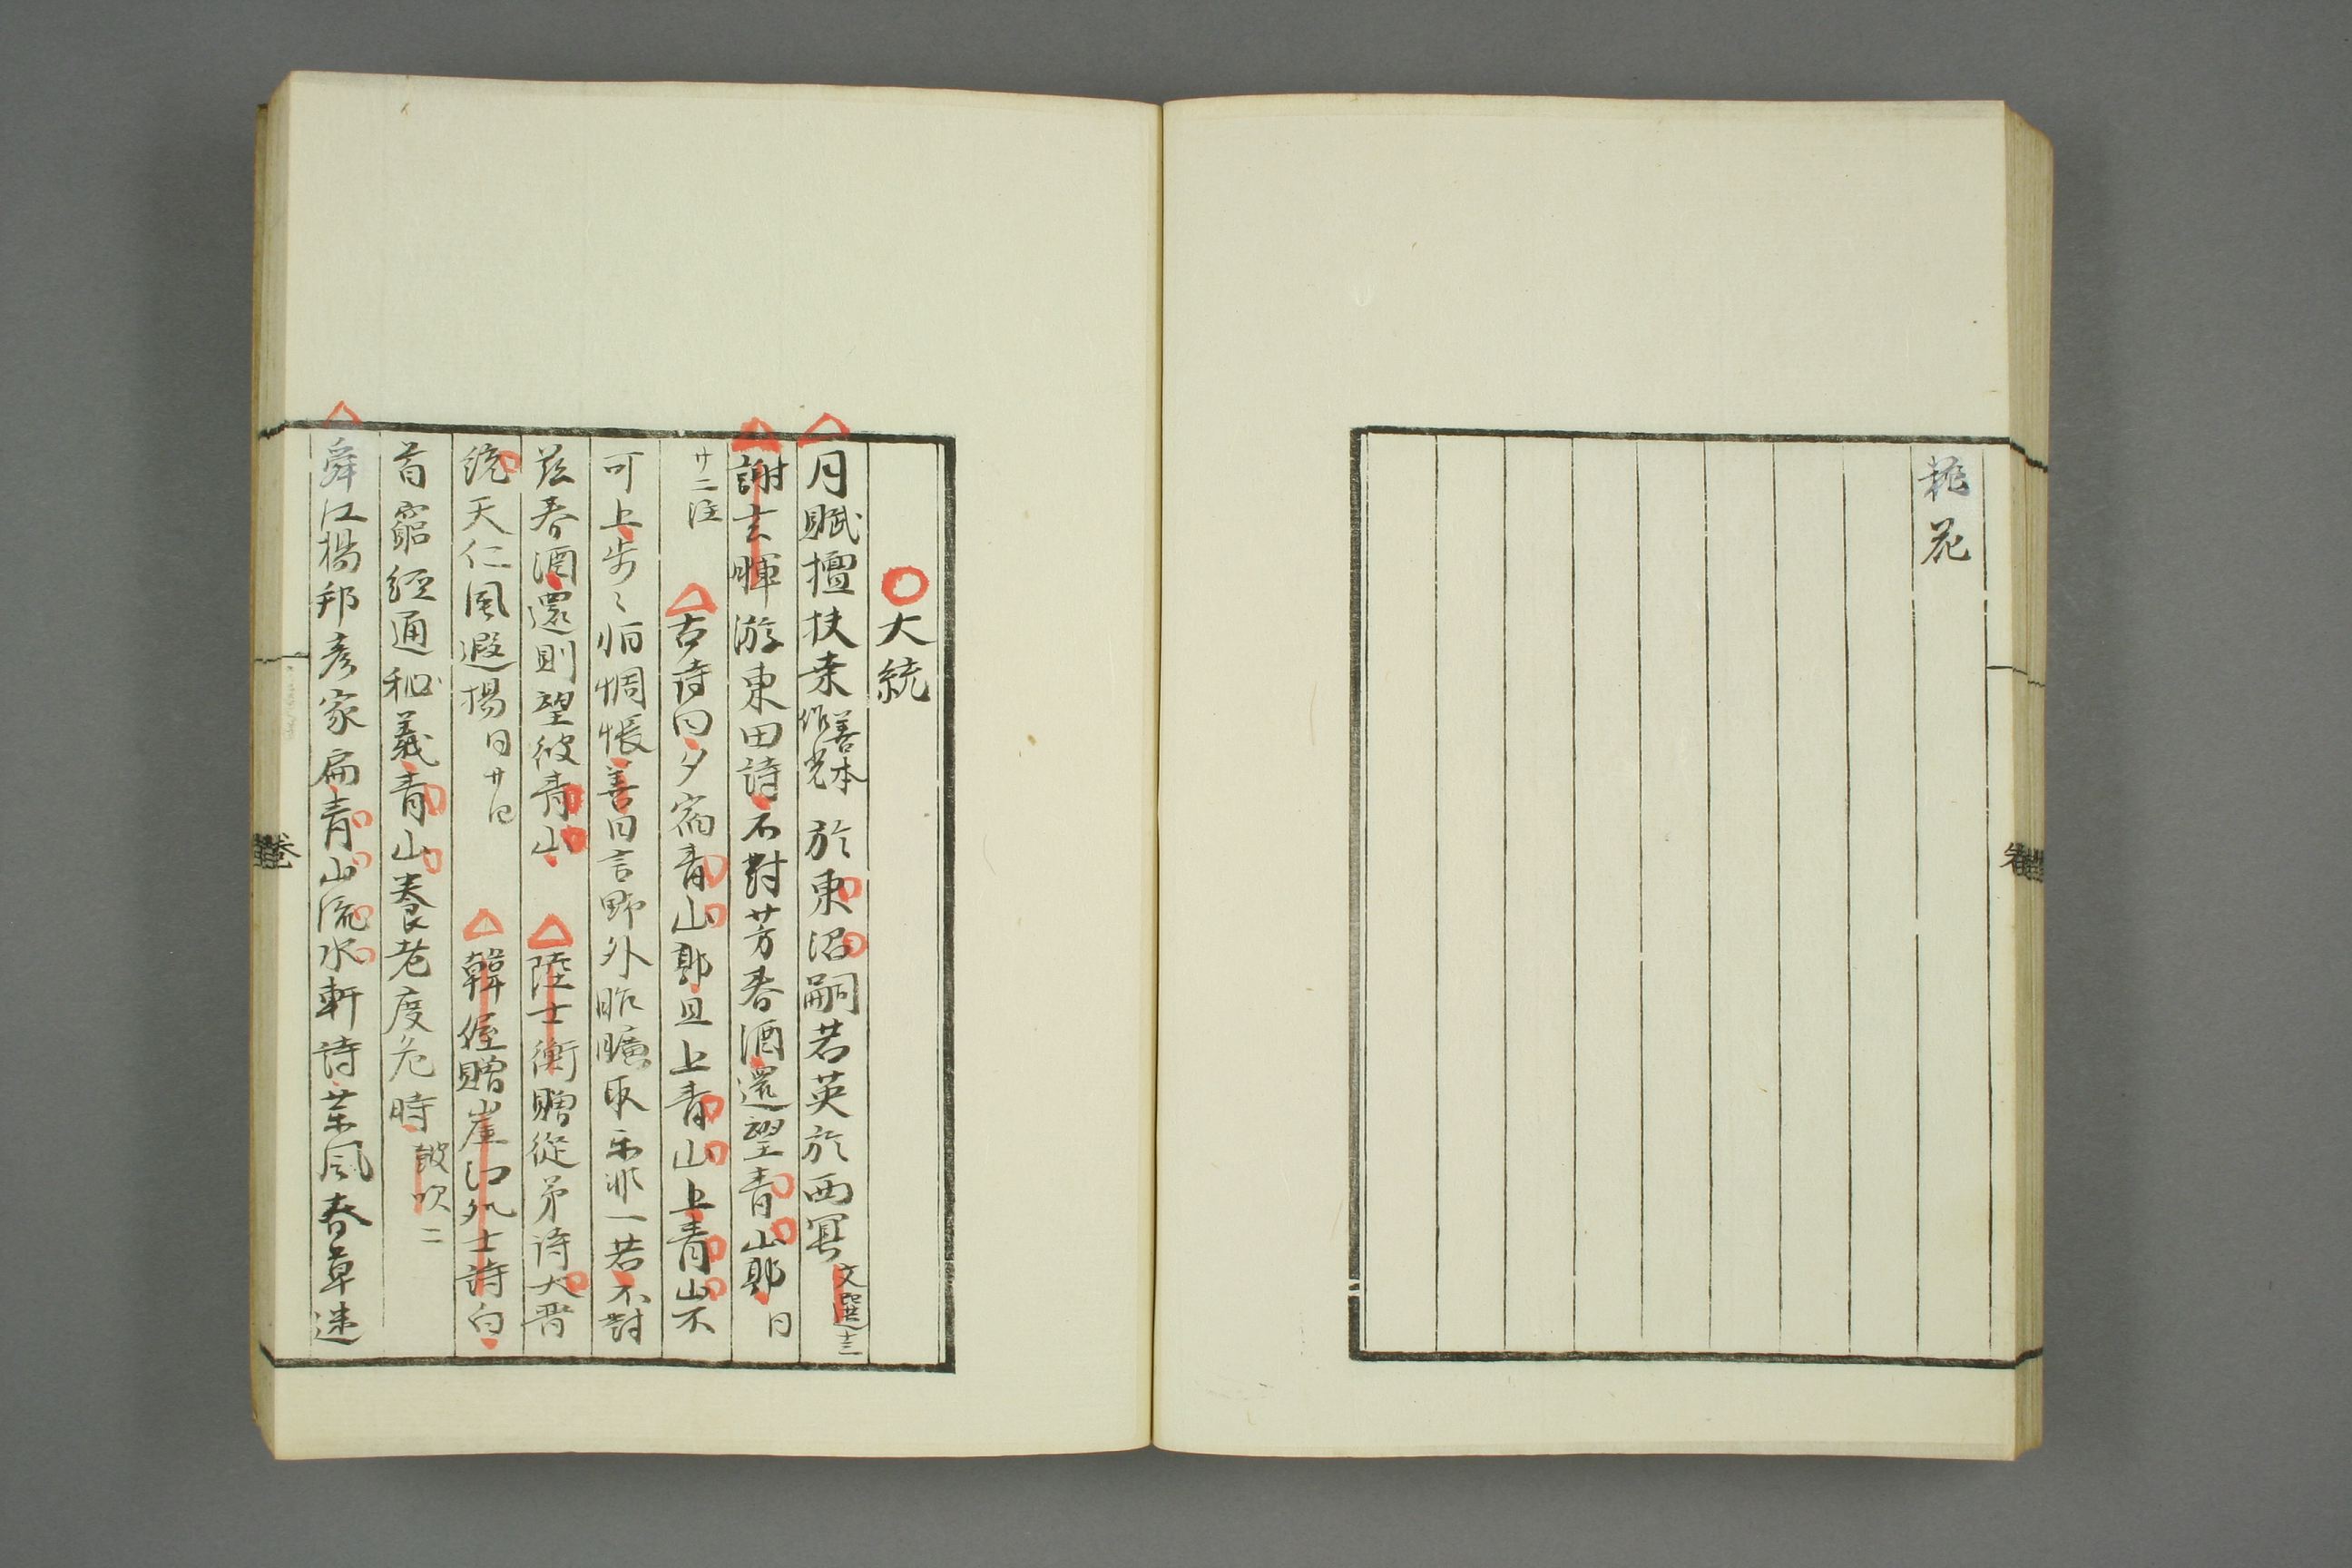 花
大統
月賦擅扶桒善本作光於東沼嗣若英於西冥文選十三
謝玄暉游東田詩不對芳春酒還望青山郭同
廿二注 古詩曰夕宿青山郭且上青山上青山不
可上步〻怕惆悵善曰言野外昭曠取樂非一若不對
茲春酒還則望彼青山 陸士衡贈從弟詩大晋
統天仁風遐揚同廿四 韓偓贈崖江処士詩白
首窮經通秘義青山養老度危時皷吹二
舜江楊邦彦家扁青山流水軒詩菜風春草迷